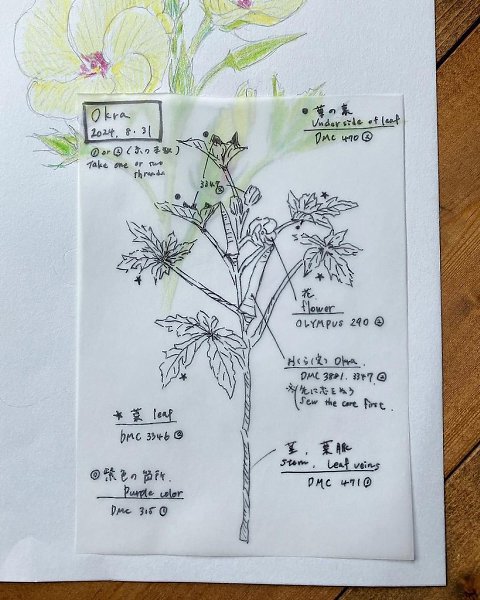 Okra
2024. 8. 31
① or ② (糸の本数)
Take one or two
threads
● 葉の裏
Under side of leaf
DMC 470 ②
3347 ②
花
flower
OLYMPUS 290 ②
オクラ(実) Okra.
DMC 3881. 3347 ②
※先に芯をぬう
Sew the core first.
★ 葉 leaf
DMC 3346 ②
◎ 紫色の箇所.
Purple color
DMC 315 ①
茎, 葉脈
stem, leaf veins
DMC 471 ①